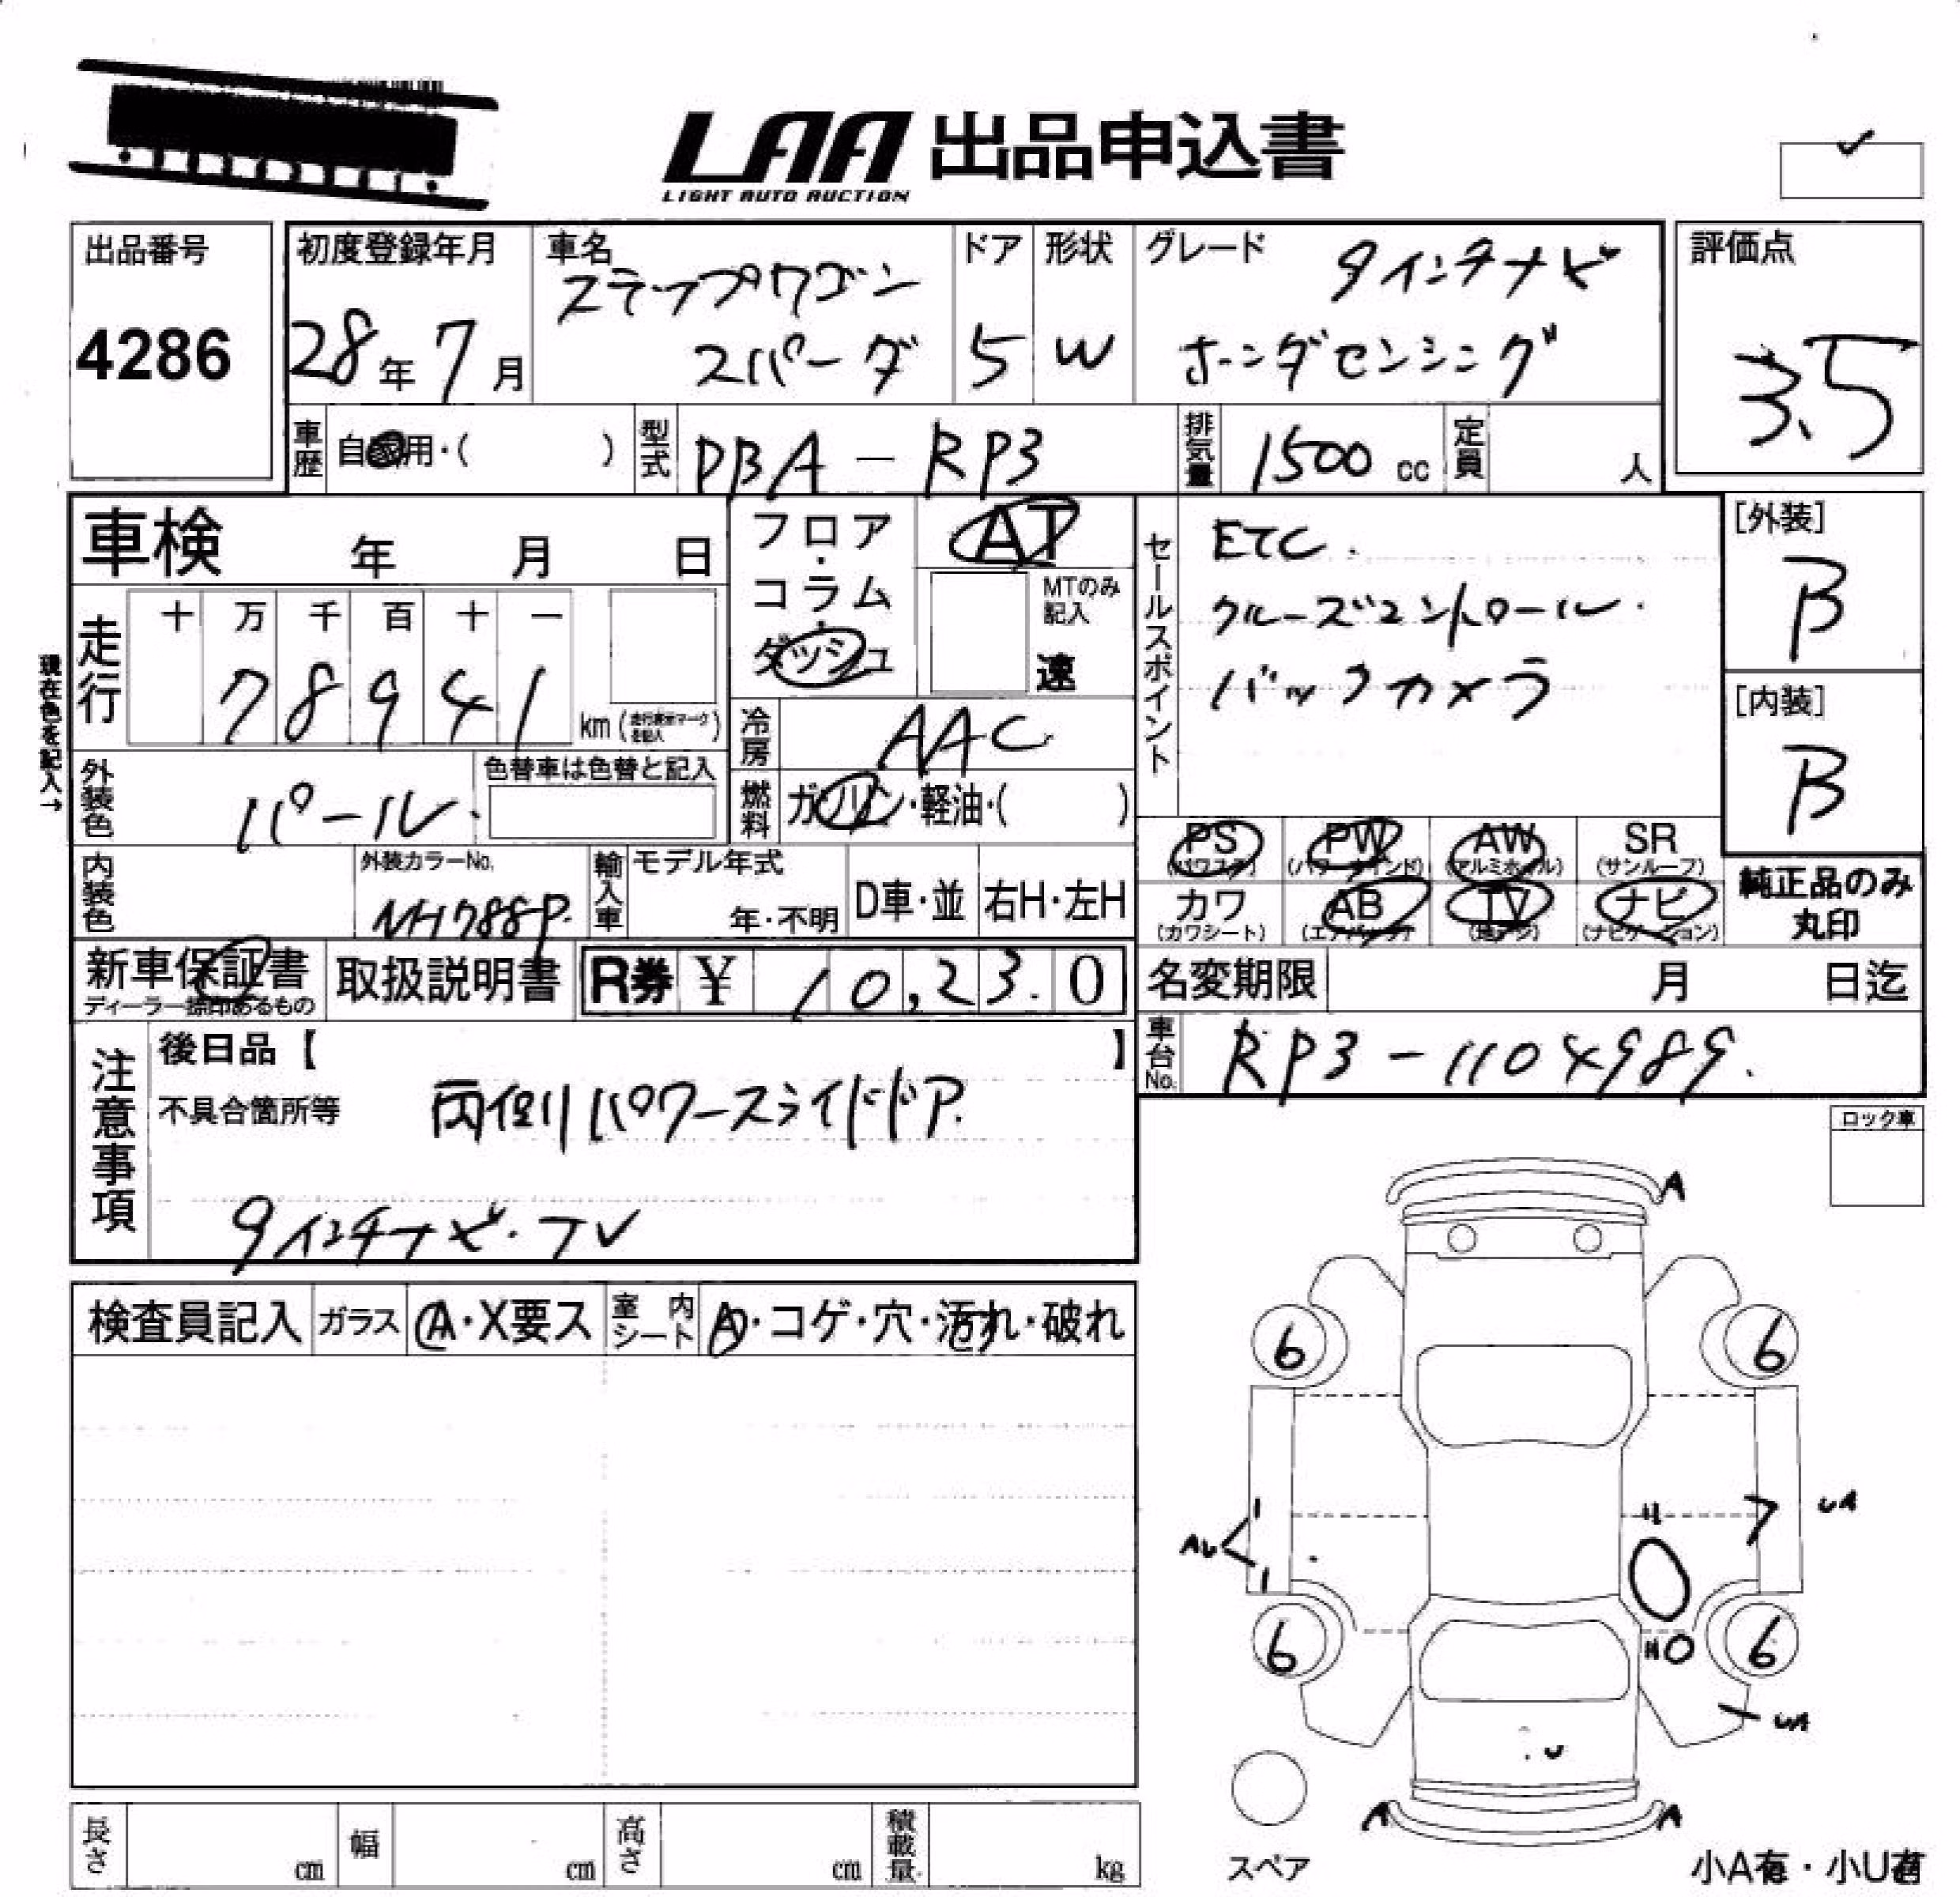 LAA 出品申込書
LIGHT AUTO AUCTION
出品番号
4286
初度登録年月
28年7月
車名
ステップワゴン
スパーダ
ドア
5
形状
W
グレード
9インチナビ
ホンダセンシング
評価点
3.5
車歴
自家用・( )
型式
DBA-RP3
排気量
1500 cc
定員
人
車検 年 月 日
フロア・コラム・ダッシュ
AT
MTのみ記入
速
セールスポイント
ETC.
クルーズコントロール.
バックカメラ
[外装]
B
[内装]
B
現在色を記入→
走行
十 万 千 百 十 一
78941
km (走行表示マークを記入)
冷房
AAC
外装色
パール.
色替車は色替と記入
燃料
ガソリン・軽油・( )
PS (パワステ)
PW (パワーウィンド)
AW (アルミホイル)
SR (サンルーフ)
カワ (カワシート)
AB (エアバッグ)
TV (地デジ)
ナビ (ナビゲーション)
純正品のみ
丸印
内装色
外装カラーNo.
NH788P.
輸入車
モデル年式
年・不明
D車・並
右H・左H
新車保証書
ディーラー捺印あるもの
取扱説明書
R券 ¥ 10,23.0
名変期限 月 日迄
車台No.
RP3-1104989.
注意事項
後日品【 】
不具合箇所等
両側パワースライドドア.
9インチナビ.TV
ロック車
検査員記入
ガラス
A・X要ス
室内シート
A・コゲ・穴・汚れ・破れ
A
6 6
UA
6 6
UA
U
A A
スペア
小A有・小U有
長さ cm
幅 cm
高さ cm
積載量 kg